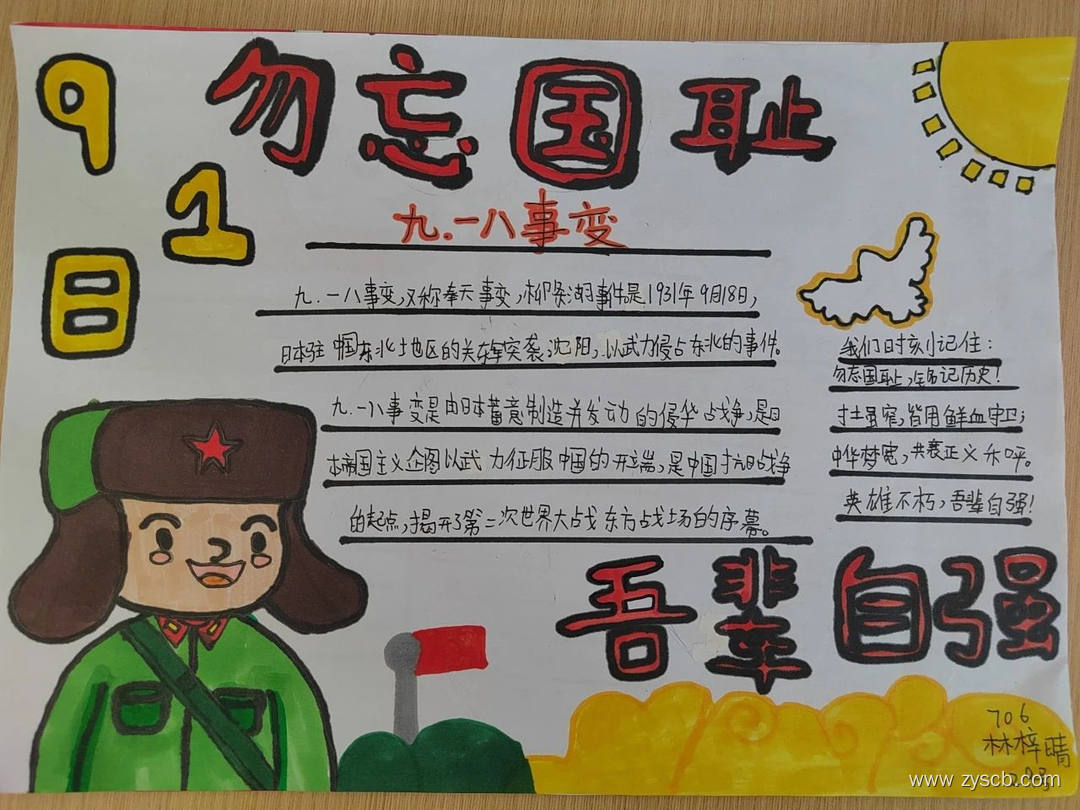 勿忘国耻
9
1
日
九.一八事变
九.一八事变,又称奉天事变,柳条湖事件是1931年9月18日,
日本驻中国东北地区的关东军突袭沈阳,以武力侵占东北的事件。
九.一八事变是由日本蓄意制造并发动的侵华战争,是日
本帝国主义企图以武力征服中国的开端,是中国抗日战争
的起点,揭开了第二次世界大战东方战场的序幕。
我们时刻记住:
勿忘国耻,铭记历史!
寸土虽窄,皆用鲜血守卫;
中华梦宽,共襄正义乐呼。
英雄不朽,吾辈自强!
吾辈自强
706
林梓晴
www.zyscb.com